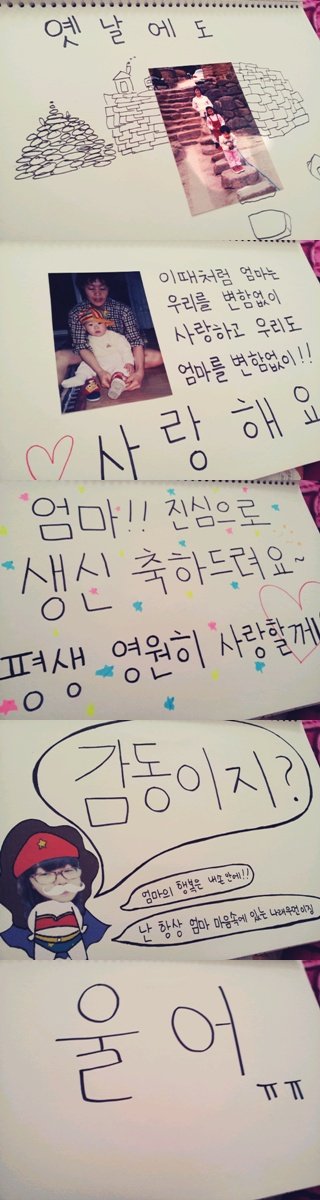 옛날에도
이때처럼 엄마는
우리를 변함없이
사랑하고 우리도
엄마를 변함없이!!
사랑해요
엄마!! 진심으로
생신 축하드려요~
평생 영원히 사랑할께
감동이지?
엄마의 행복은 내손안에!!
난 항상 엄마 마음속에 있는 나래우먼이징
울어
ㅠㅠ